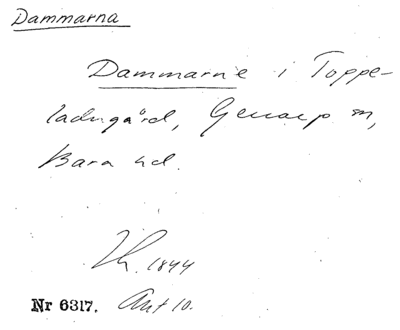 Dammarna
Dammarne i Toppe-
ladugård, Genarp sn,
Bara hd.
Lk. 1844
Nr 6317. Akt 10.